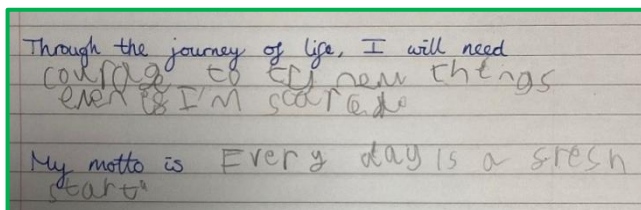 Through the journey of life, I will need
courage to try new things
even if I'm scared.
My motto is Every day is a fresh
start"